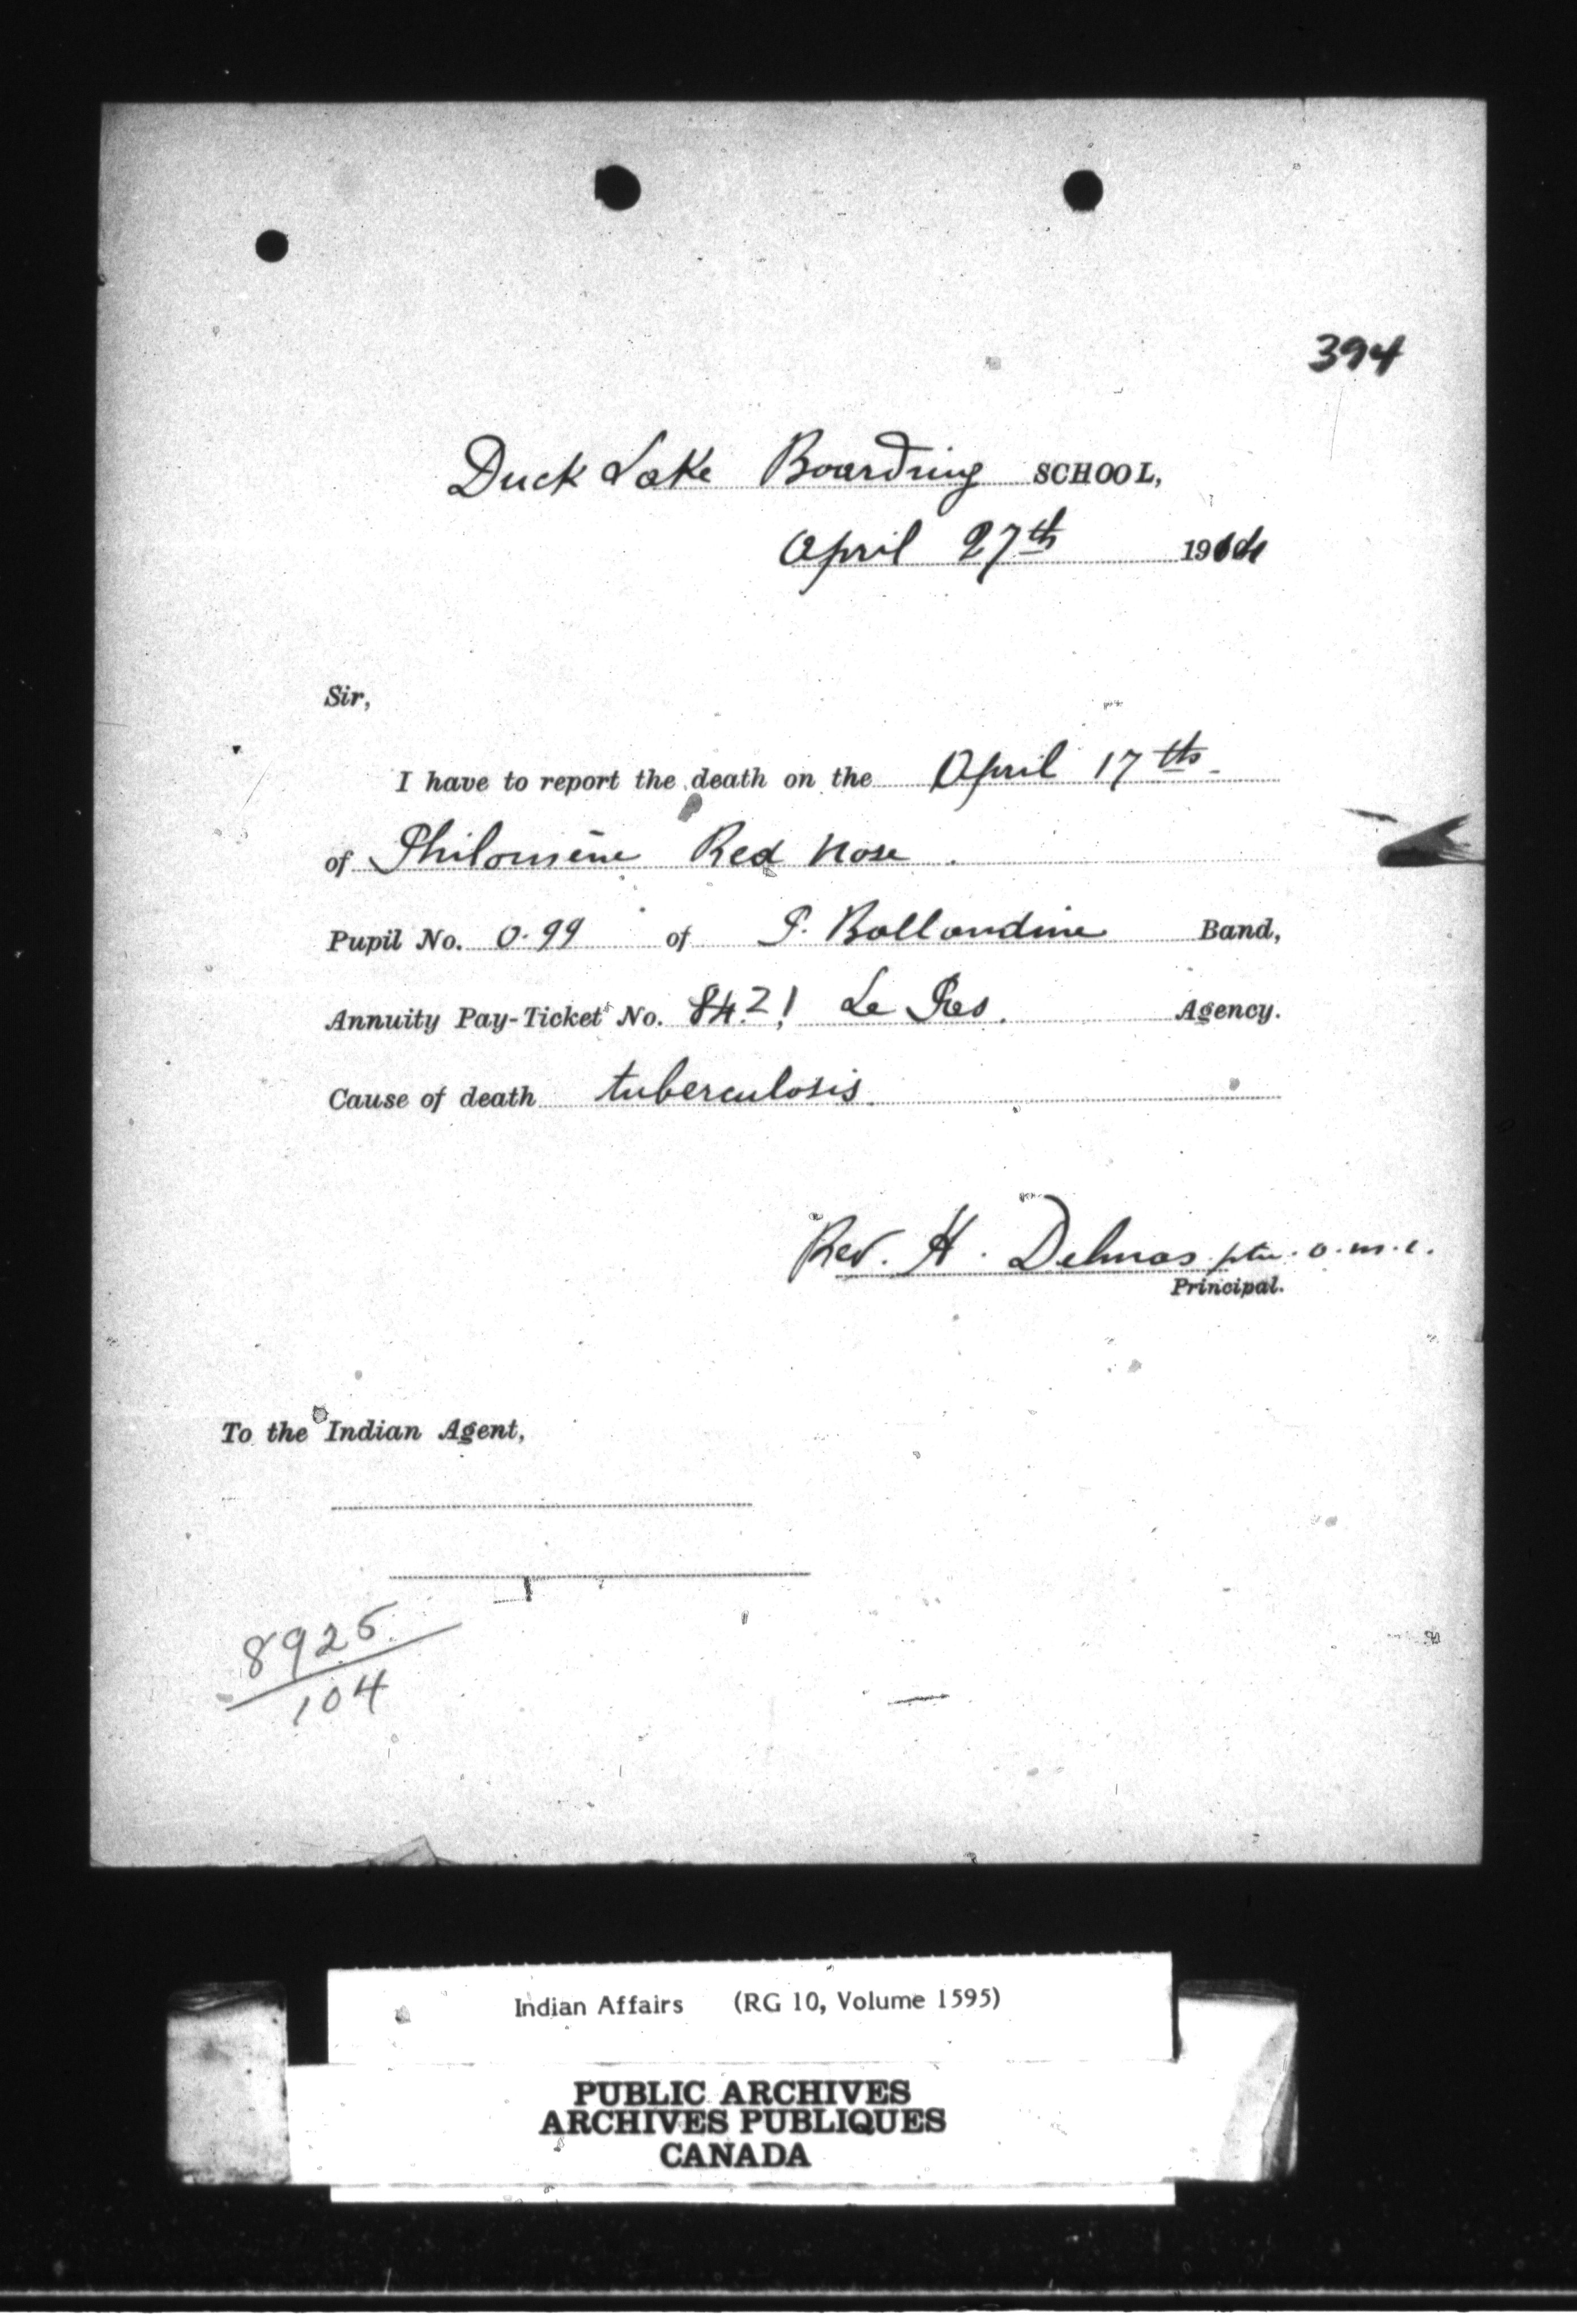 394
Duck Lake Boarding SCHOOL,
April 27th 191
Sir,
I have to report the death on the April 17th
of Philomène Red Nose.
Pupil No. 0.99 of P. Ballandine Band,
Annuity Pay-Ticket No. 84. Le Pas. Agency.
Cause of death tuberculosis.
Rev. H. Delmas ptre. o.m.i.
Principal.
To the Indian Agent,
8925
104
Indian Affairs (RG 10, Volume 1595)
PUBLIC ARCHIVES
ARCHIVES PUBLIQUES
CANADA